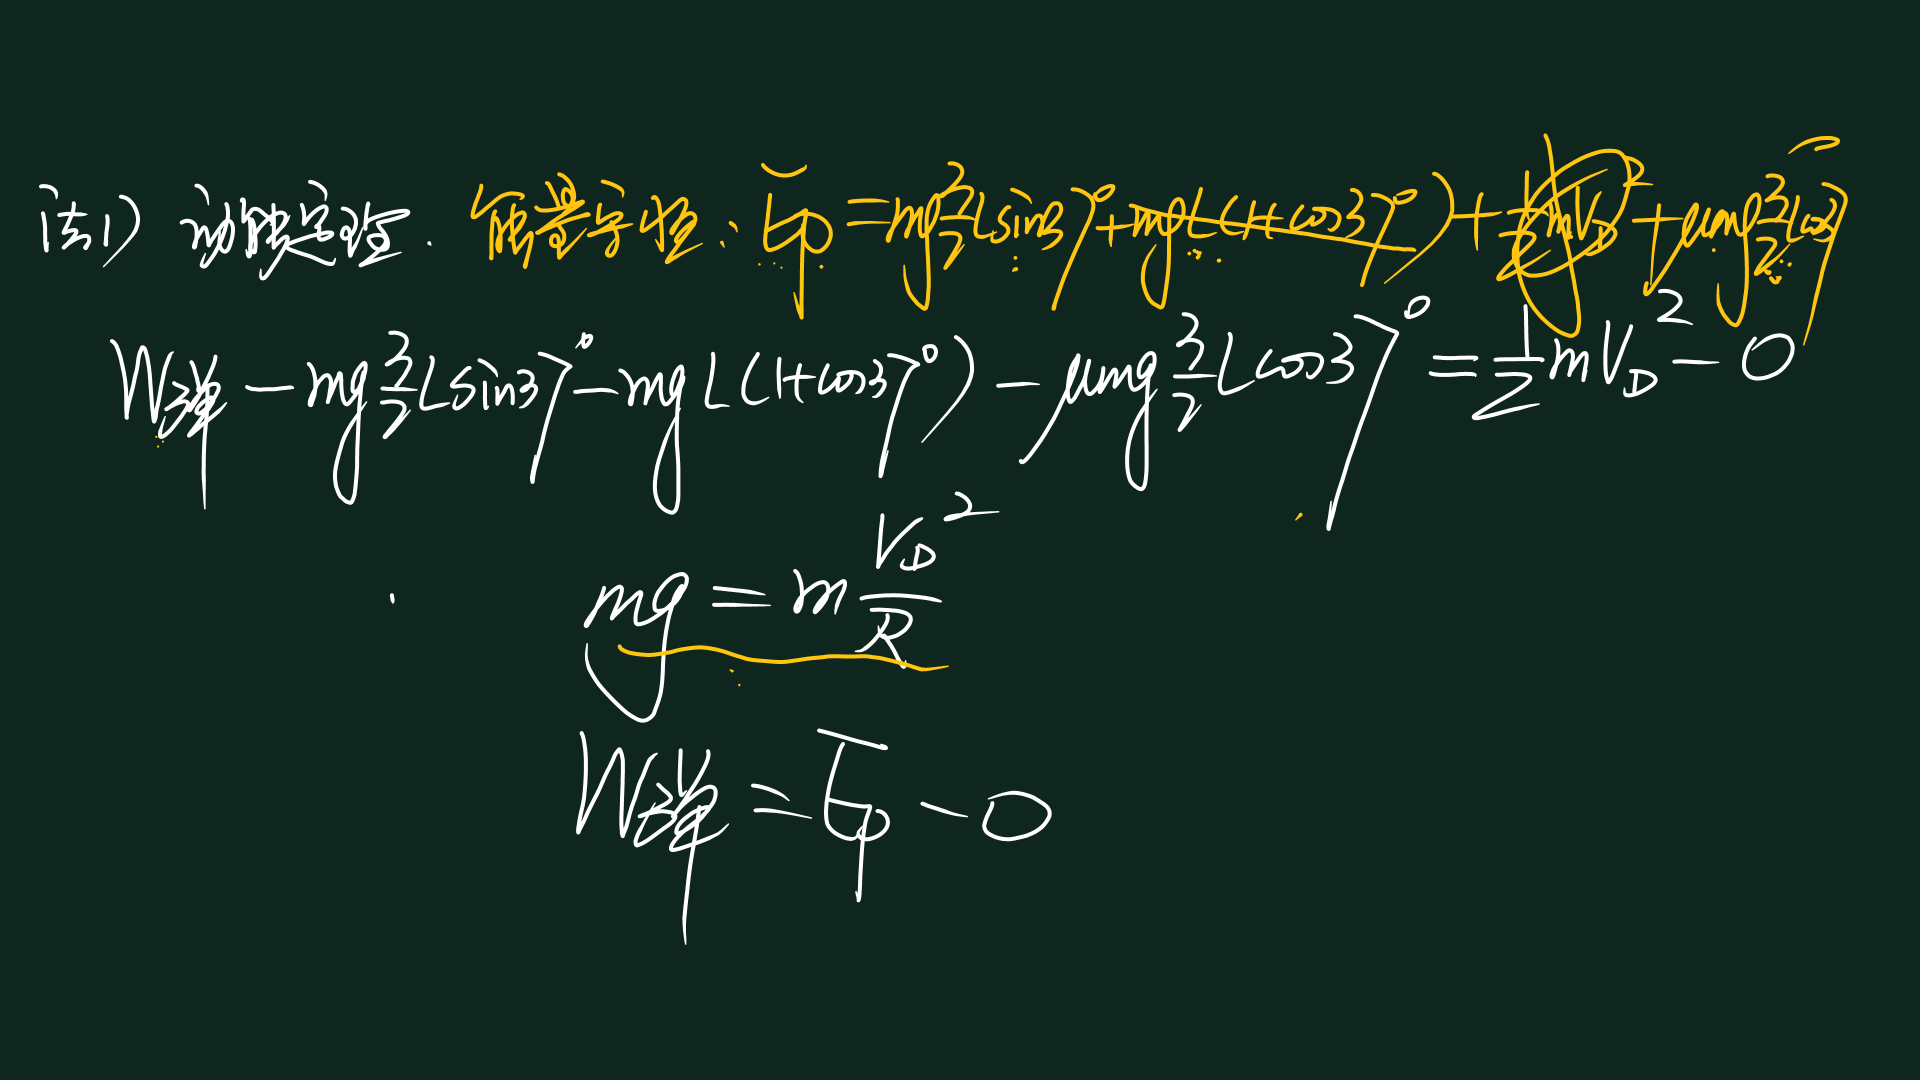 法1) 动能定理. 能量守恒: Ep = mg 3/2 L sin37° + mgL(1+cos37°) + 1/2 mV_D² + μmg 3/2 L cos37°
W弹 − mg 3/2 L sin37° − mgL(1+cos37°) − μmg 3/2 L cos37° = 1/2 mV_D² − 0
mg = m V_D²/R
W弹 = Ep − 0